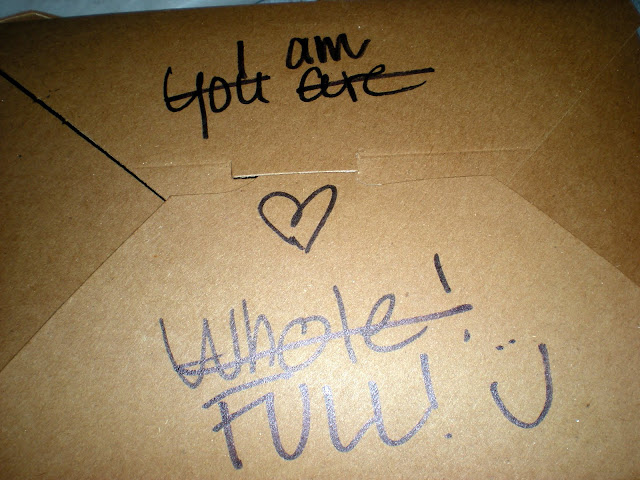 I am
You are
Whole!
FULL!